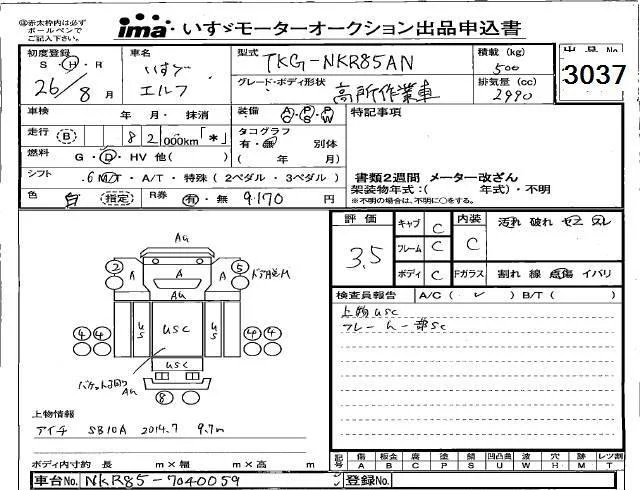 ◎赤太枠内は必ず
ボールペンで
ご記入下さい。
ima いすゞモーターオークション出品申込書
初度登録 S・H・R
26/8月
車名 いすゞ エルフ
型式 TKG-NKR85AN
積載 (kg) 500
出品No. 3037
グレード・ボディ形状 高所作業車
排気量 (cc) 2990
車検 年・月・抹消
装備 A/C・P/S・P/W
特記事項
走行 (B) 82,000km「*」
タコグラフ 有・無 別体
( 年 月)
燃料 G・D・HV 他( )
シフト 6 M/T・A/T・特殊(2ペダル・3ペダル)
書類2週間 メーター改ざん
架装物年式:( 年式)・不明
※不明の場合は、不明に○をする。
色 白 (指定) R券 有・無 9,170 円
評価 3.5
キャブ C 内装 C 汚れ 破れ セコ スレ
フレーム C
ボディ C Fガラス 割れ 線 点傷 イバリ
検査員報告 A/C( ✓ ) B/T( )
上物usc
フレーム一部sc
Au
2 A A A 5 ドアAEM
Au
us usc us
4 4 4 4
usc
バケット3回り Au
8
上物情報
アイチ SB10A 2014.7 9.7m
ボディ内寸約 長 m×幅 m×高 m
記号 傷 板金 腐 塗 錆 凹凸曲 波 穴 跡 レツ割
A B C P S U W H M T
車台No. NKR85-7040059 登録No.